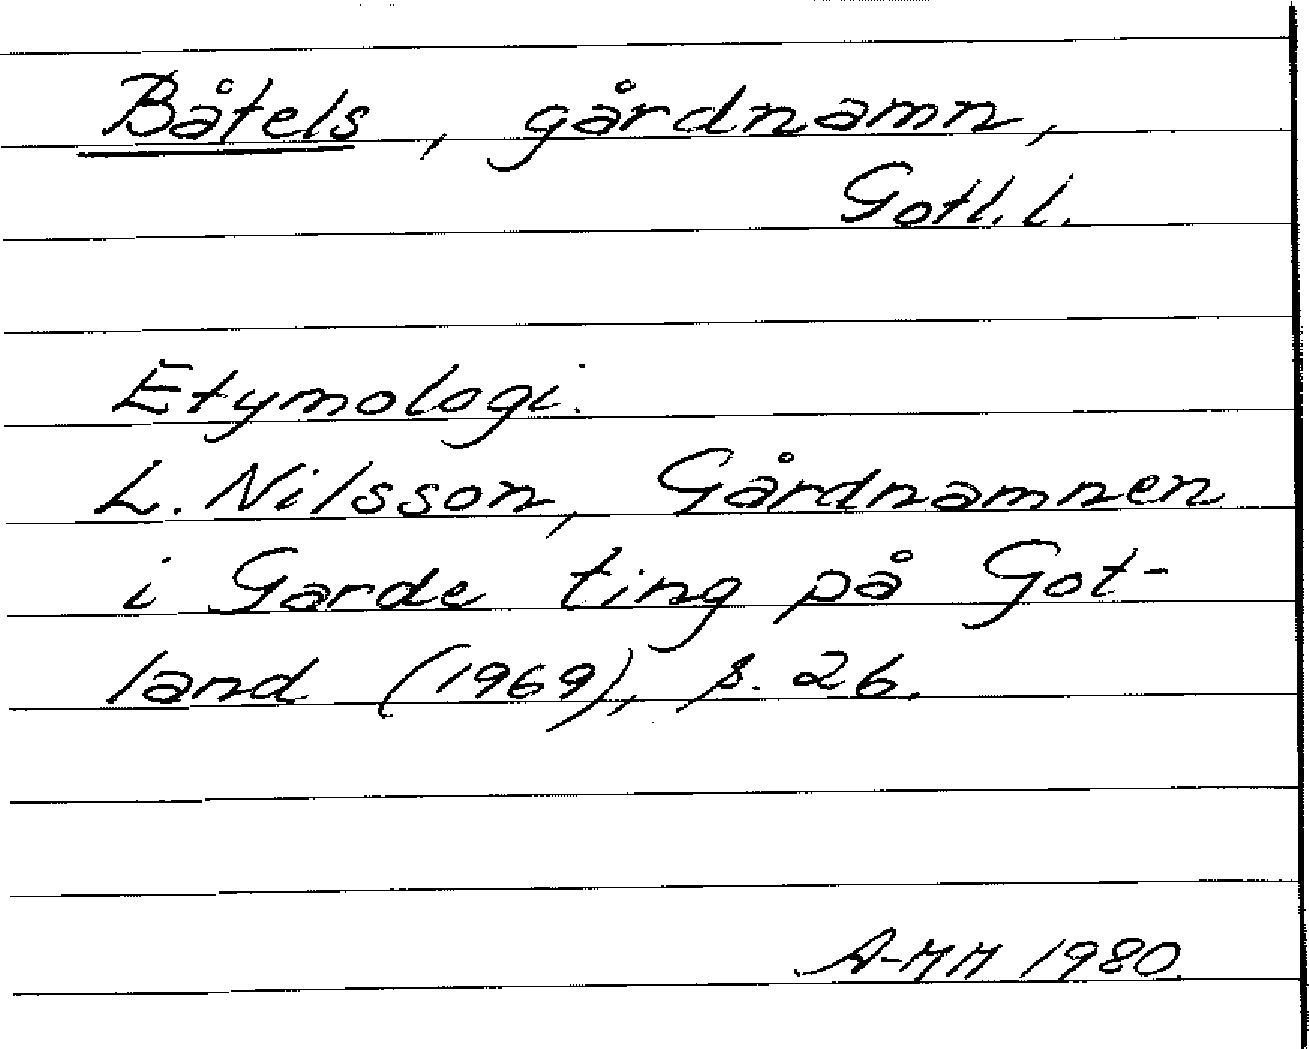 Båtels, gårdnamn,
Gotl. l.
Etymologi.
L. Nilsson, Gårdnamnen
i Garde ting på Got-
land (1969), s. 26.
A-MH 1980